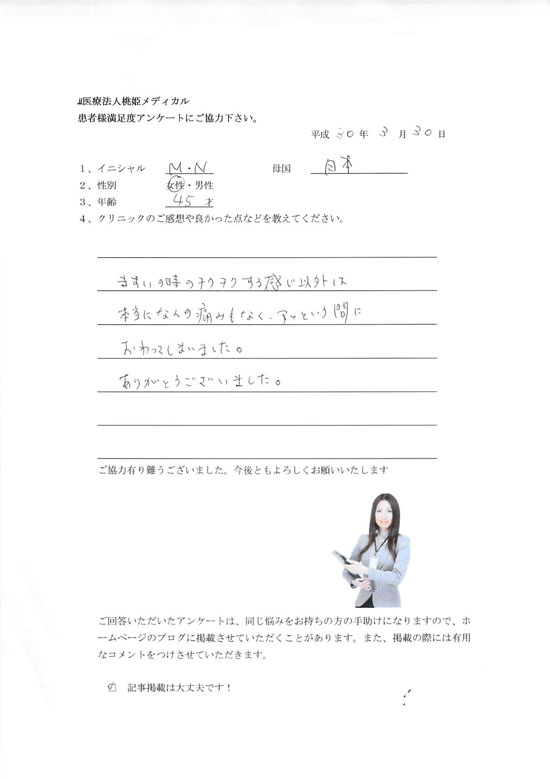 医療法人桃姫メディカル
患者様満足度アンケートにご協力下さい。
平成 30 年 3 月 30 日
1、イニシャル M・N 母国 日本
2、性別 女性・男性
3、年齢 45 才
4、クリニックのご感想や良かった点などを教えてください。
ますいの時のチクチクする感じ以外は
本当になんの痛みもなく、アッという間に
おわってしまいました。
ありがとうございました。
ご協力有り難うございました。今後ともよろしくお願いいたします
ご回答いただいたアンケートは、同じ悩みをお持ちの方の手助けになりますので、ホ
ームページのブログに掲載させていただくことがあります。また、掲載の際には有用
なコメントをつけさせていただきます。
☑ 記事掲載は大丈夫です！